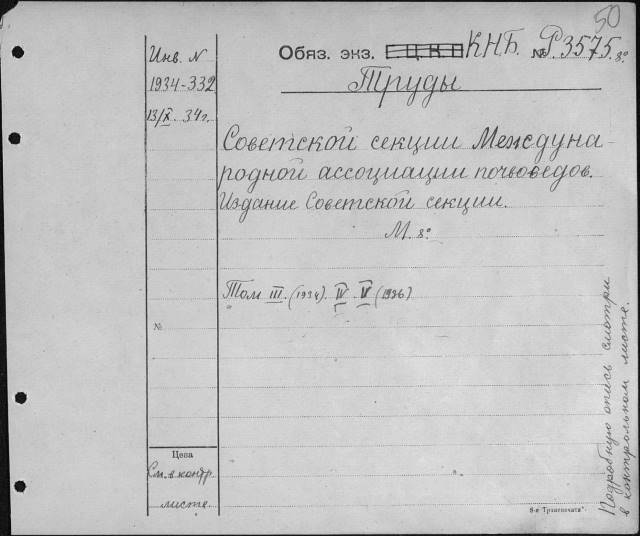 50
Инв. N
1934-332
13/X. 34г.
Обяз. экз. Ц.К.Н К.Н.Б. № Р3575. 8°
Труды
Советской секции Междуна-
родной ассоциации почвоведов.
Издание Советской секции.
М. 8°
Том III. (1934). IV. V (1936)
№
Цена
См. в контр.
листе.
Подробную опись смотри
в контрольном листе.
8-я Транспечати.